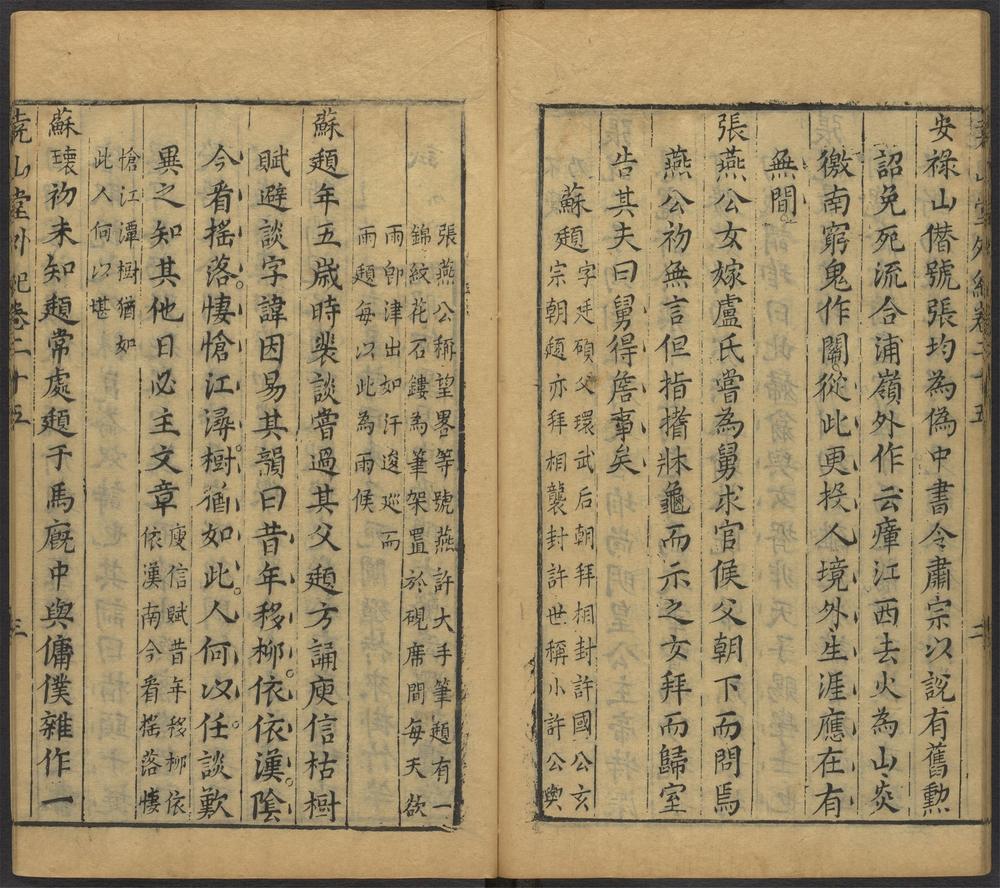 安祿山僣號張均為偽中書令肅宗以說有舊勲
詔免死流合浦嶺外作云瘴江西去火為山炎
徼南窮鬼作關從此更投人境外生涯應在有
無間
張燕公女嫁盧氏嘗為舅求官候父朝下而問焉
燕公初無言但指搘牀龜而示之女拜而歸室
告其夫曰舅得詹事矣
蘇頲
字廷碩父環武后朝拜相封許國公玄
宗朝頲亦拜相襲封許世稱小許公與
張燕公稱望畧等號燕許大手筆頲有一
錦紋花石鏤為筆架置於硯席間每天欲
雨即津出如汗逡廵而
雨頲每以此為雨候
蘇頲年五歲時裴談嘗過其父頲方誦庾信枯樹
賦避談字諱因易其韻曰昔年移柳依依漢陰
今看搖落悽愴江潯樹猶如此人何以任談歎
異之知其他日必主文章
庾信賦昔年移柳依
依漢南今看搖落悽
愴江潭樹猶如
此人何以堪
蘇瓌初未知頲常處頲于馬廐中與傭僕雜作一
堯山堂外紀卷二十五
三